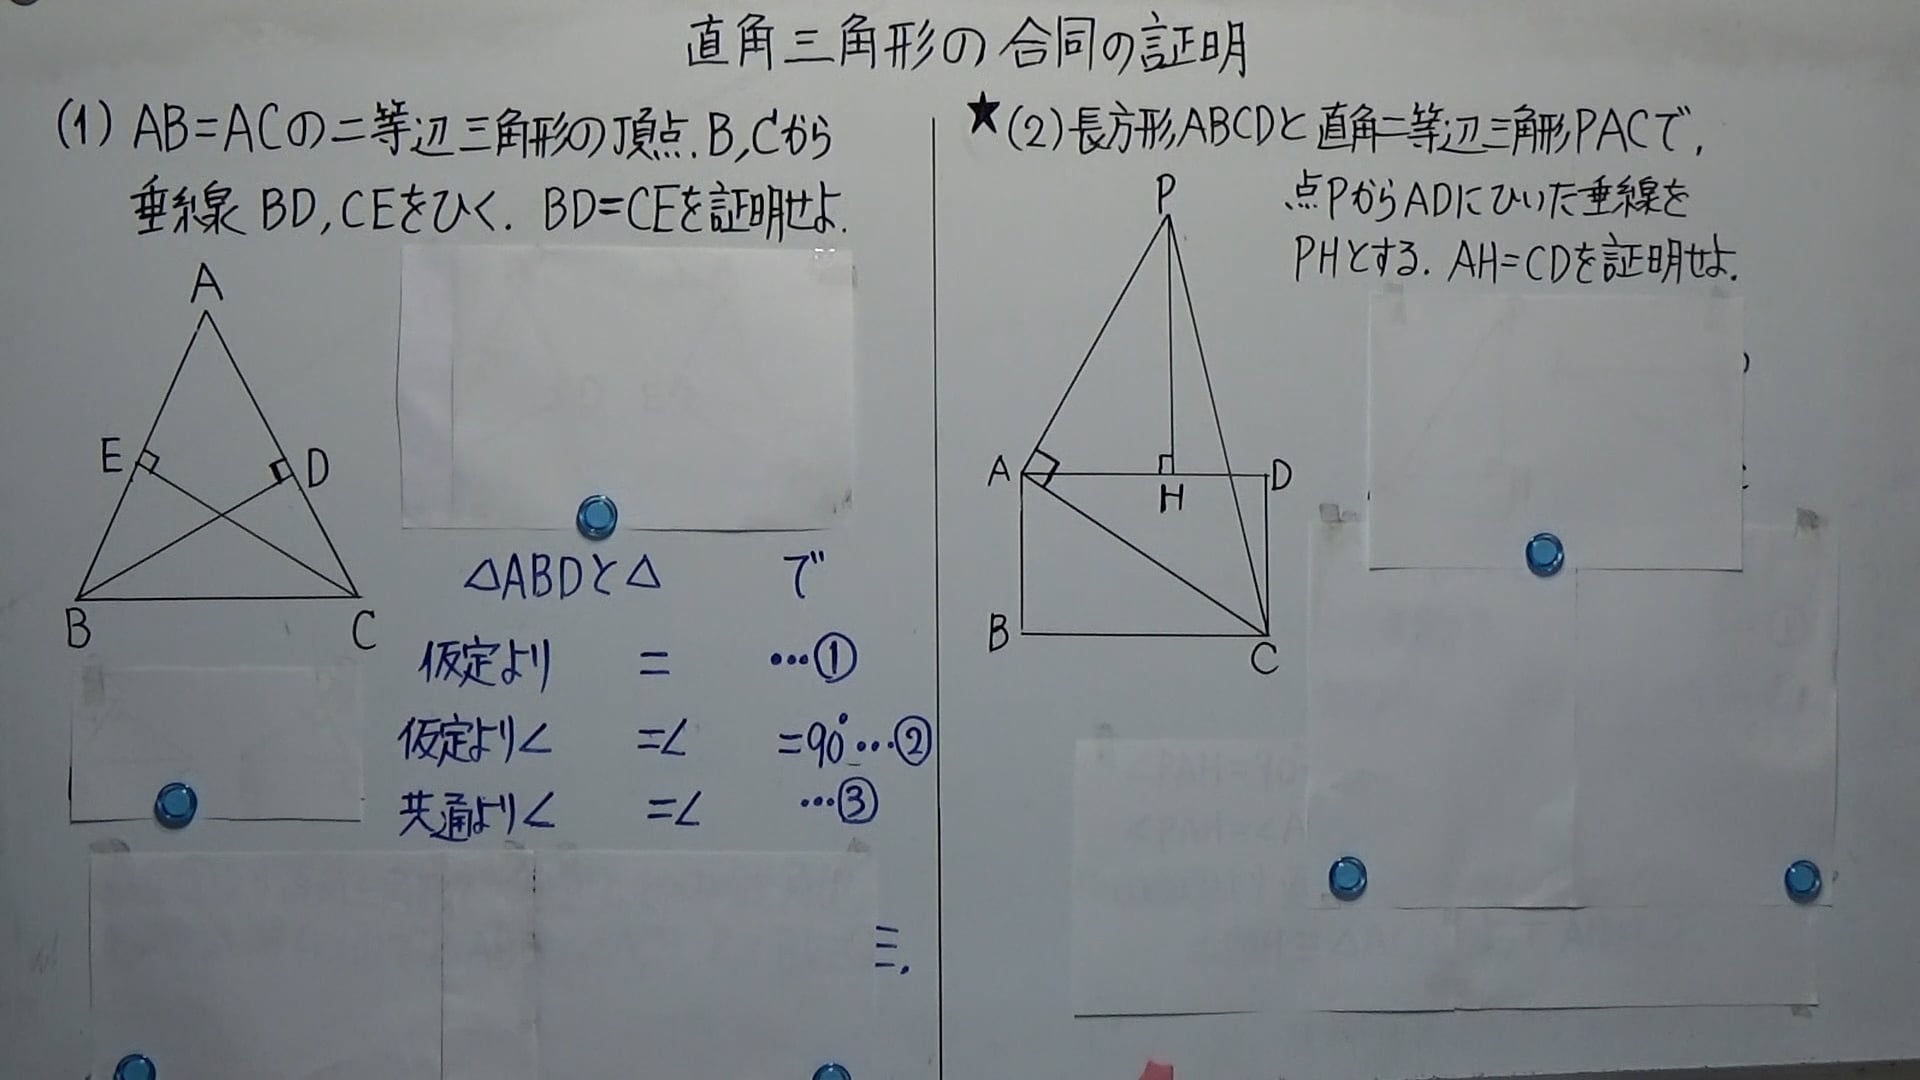 直角三角形の合同の証明
(1) AB=ACの二等辺三角形の頂点.B,Cから
垂線 BD,CEをひく. BD=CEを証明せよ.
A
E
D
B
C
△ABDと△ で
仮定より = …①
仮定より∠ =∠ =90°…②
共通より∠ =∠ …③
★(2)長方形ABCDと直角二等辺三角形PACで,
点PからADにひいた垂線を
PHとする. AH=CDを証明せよ.
P
A
H
D
B
C